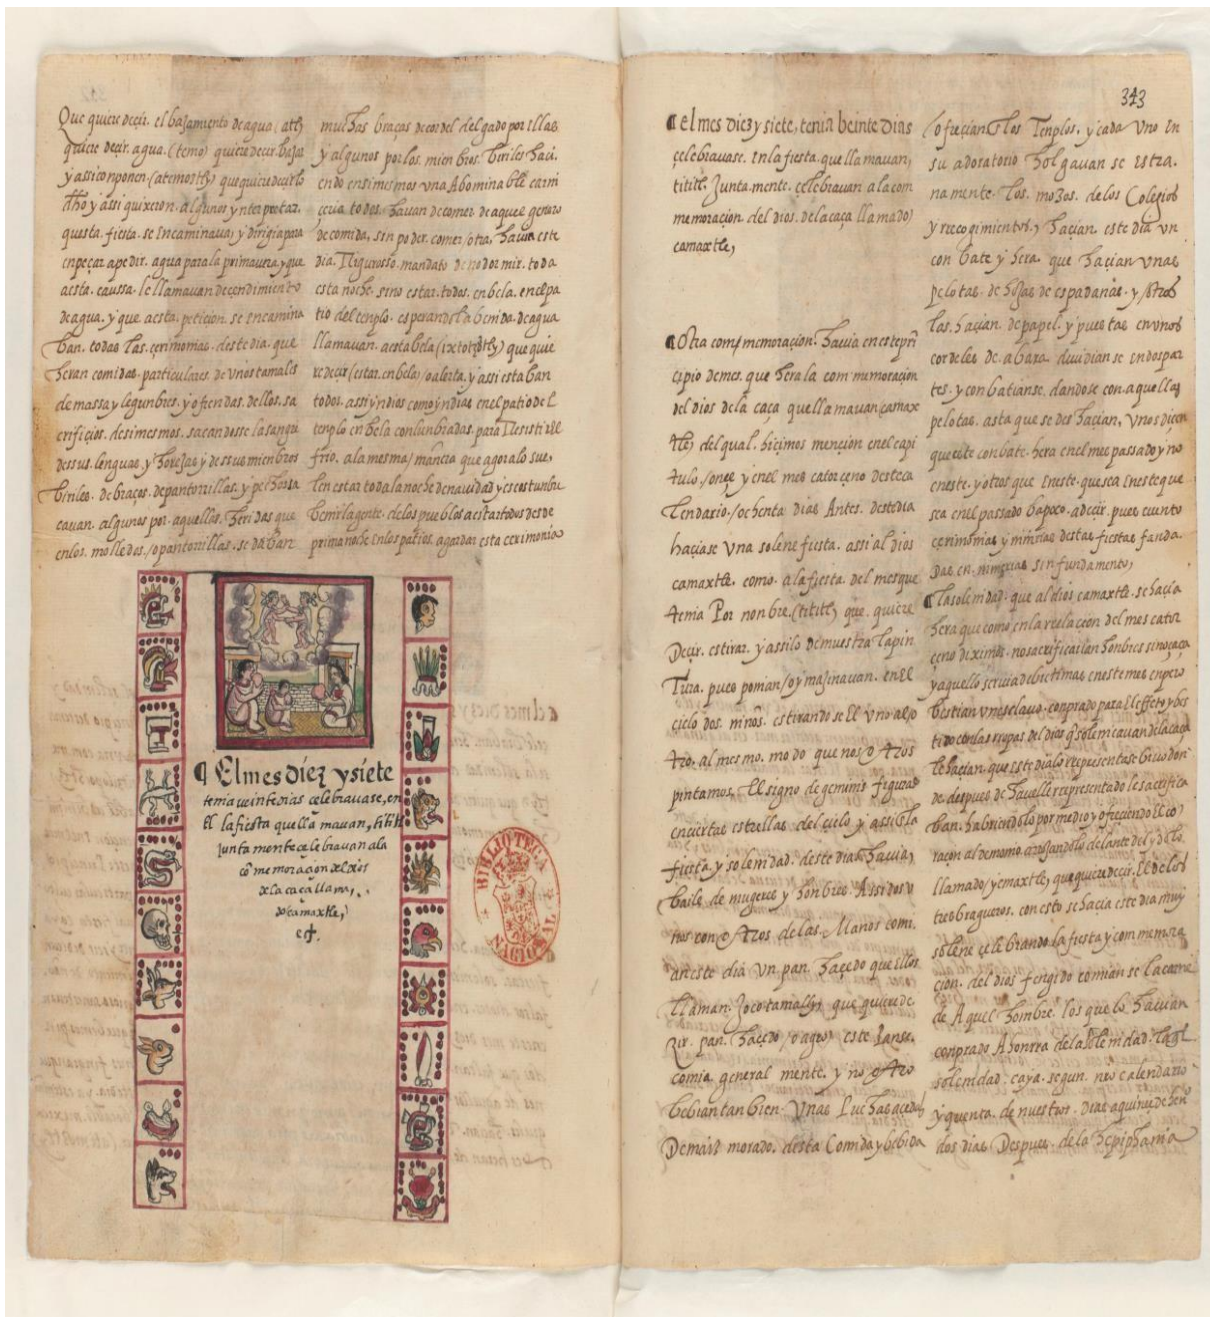 Que quiere decir. el bajamiento de agua (atl)
quiere decir. agua. (temo) quiere decir. bajar
y assi conponen (atemoztli) que quiere decir lo
dho y assi quixeron. algunos ynterpretar.
questa. fiesta. se encaminava, y dirigia para
enpeçar a pedir. agua para la primavera, y que
a esta. caussa. le llamavan decendimiento
de agua. y que a esta. peticion. se encamina
ban. todas las. çerimonias. deste dia. que
heran comidas. particulares. de unos tamales
de massa y legunbres. y ofrendas. dellos. sa
crificios. de si mesmos. sacandosse la sangre
de sus. lenguas. y horejas y de sus mienbros
beriles. de braços. de pantorrillas. y pechos sa
cavan. algunos por. aquellas. heridas que
en los. molledos. /o pantorrillas. se daban
muchas braças de cordel delgado por ellas
y algunos por los. mienbros. beriles haci.
endo en si mesmos una Abominable carni
çeria todos. havan de comer de aquel genero
de comida, sin poder. comer /otra, havia este
dia. Rigurosso. mandato de no dormir. toda
esta noche. sino estar. todos. en bela. en el pa
tio del tenplo. esperando la benida. de agua
llamavan. a esta bela (ixtoçoztli) que quie
re decir (estar. en bela) /o alerta. y assi estaban
todos. assi yndios como yndias en el patio del
templo en bela con lunbradas. para Resistir el
frio. a la mesma/ mancia que agora lo sue,
len estar toda la noche de navidad y es costunbre
benir la gente. de los pueblos a estar todos desde
prima noche en los patios. agardar esta cerimonia
¶ El mes diez y siete
tenia veinte dias celebravase, en
el la fiesta que lla mavan, tititl
junta mente celebravan a la
cõ memoracion del dios
de la caça llama,
do camaxtle,
BIBLIOTECA
NACIONAL
343
¶ el mes diez y siete, tenia beinte dias
çelebravase. En la fiesta. que llamavan,
tititl. Junta. mente. çelebravan a la com
memoraçion. del dios. de la caça llamado)
camaxtle,
¶ Otra com/memoraçion. havia en este prin
cipio de mes. que hera la com memoraçion
del dios de la caça que llamavan (camax
tle) del qual. hiçimos mençion en el capi
tulo. /onçe y en el mes catorçeno deste ca
lendario. /ochenta dias Antes. deste dia
haçiase Una solene fiesta. assi al dios
camaxtle. como. a la fiesta. del mes que
tenia Por nonbre. (tititl) que. quiere
Decir. estirar. y assi lo demuestra la pin
tura. pues ponian /o ymajinavan. en El
cielo dos. niños. estirandose El uno al o
tro. al mesmo. modo que nosotros
pintamos. El signo de geminis figuras
en ciertas estrellas. del cielo y assi la
fiesta. y solenidad. deste dia. havia,
baile de mugeres y honbres. Assidos u
nos con otros de las. Manos comi.
an este dia un pan. haçedo que ellos
llaman. Jocotamalli, que quiere de
zir. pan. haçedo /o agro) este panse.
comia general mente. y no otro
bebian tanbien. Unas Puchas açedas
De maiz morado. desta Comida y bebida
/ofreçian a los Tenplos. y cada Uno en
su adoratorio holgavan se estra.
namente. los. mozos. de los Colegios
y recogimientos, haçian este dia un
conbate y hera. que haçian unas
pelotas. de hojas de espadanas. y /otros
las. haçian. de papel. y puestas en unos
cordeles de. a bara. devidianse en dos par
tes. y conbatianse. dandose con. aquellas
pelotas. asta que se des haçian, unos diçen
que este conbate. hera en el mes passado y no
en este. y otros que en este. que sea en este que
sea en el passado ba poco. a deçir. pues cuento
çerimonias y niñerias destas fiestas funda.
das en. ningunas sin fundamento,
¶ La solenidad. que al dios camaxtle. se haçia
hera que como en la relaçion del mes cator
çeno diximos. no sacrificavan honbres sino caça
y aquello servia de bictimas en este mes enpero
bestian un esclavo. conprado para El effeto y bes
tido con las rropas del dios q̃ solemnicavan de la caça
le haçian. que este dia lo rrepresentase bivo don
de. despues de havelle representado le sacrifica
ban. habriendolo por medio y ofreçiendo el co
raçon al demonio. arrojandolo delante del ydolo
llamado/ yemaxtle, que quiere deçir. El de los
tres bragueros. con esto se haçia este dia muy
solene çelebrando la fiesta y commemora
çion. del dios fengido comianse la carne
de Aquel hombre. los que lo havian
conprado A honrra de la solenidad. La ql
solenidad. caya. segun. nro calendario
y quenta. de nuestros. dias a quinçe de hen
dos dias Despues. de la hepiphania